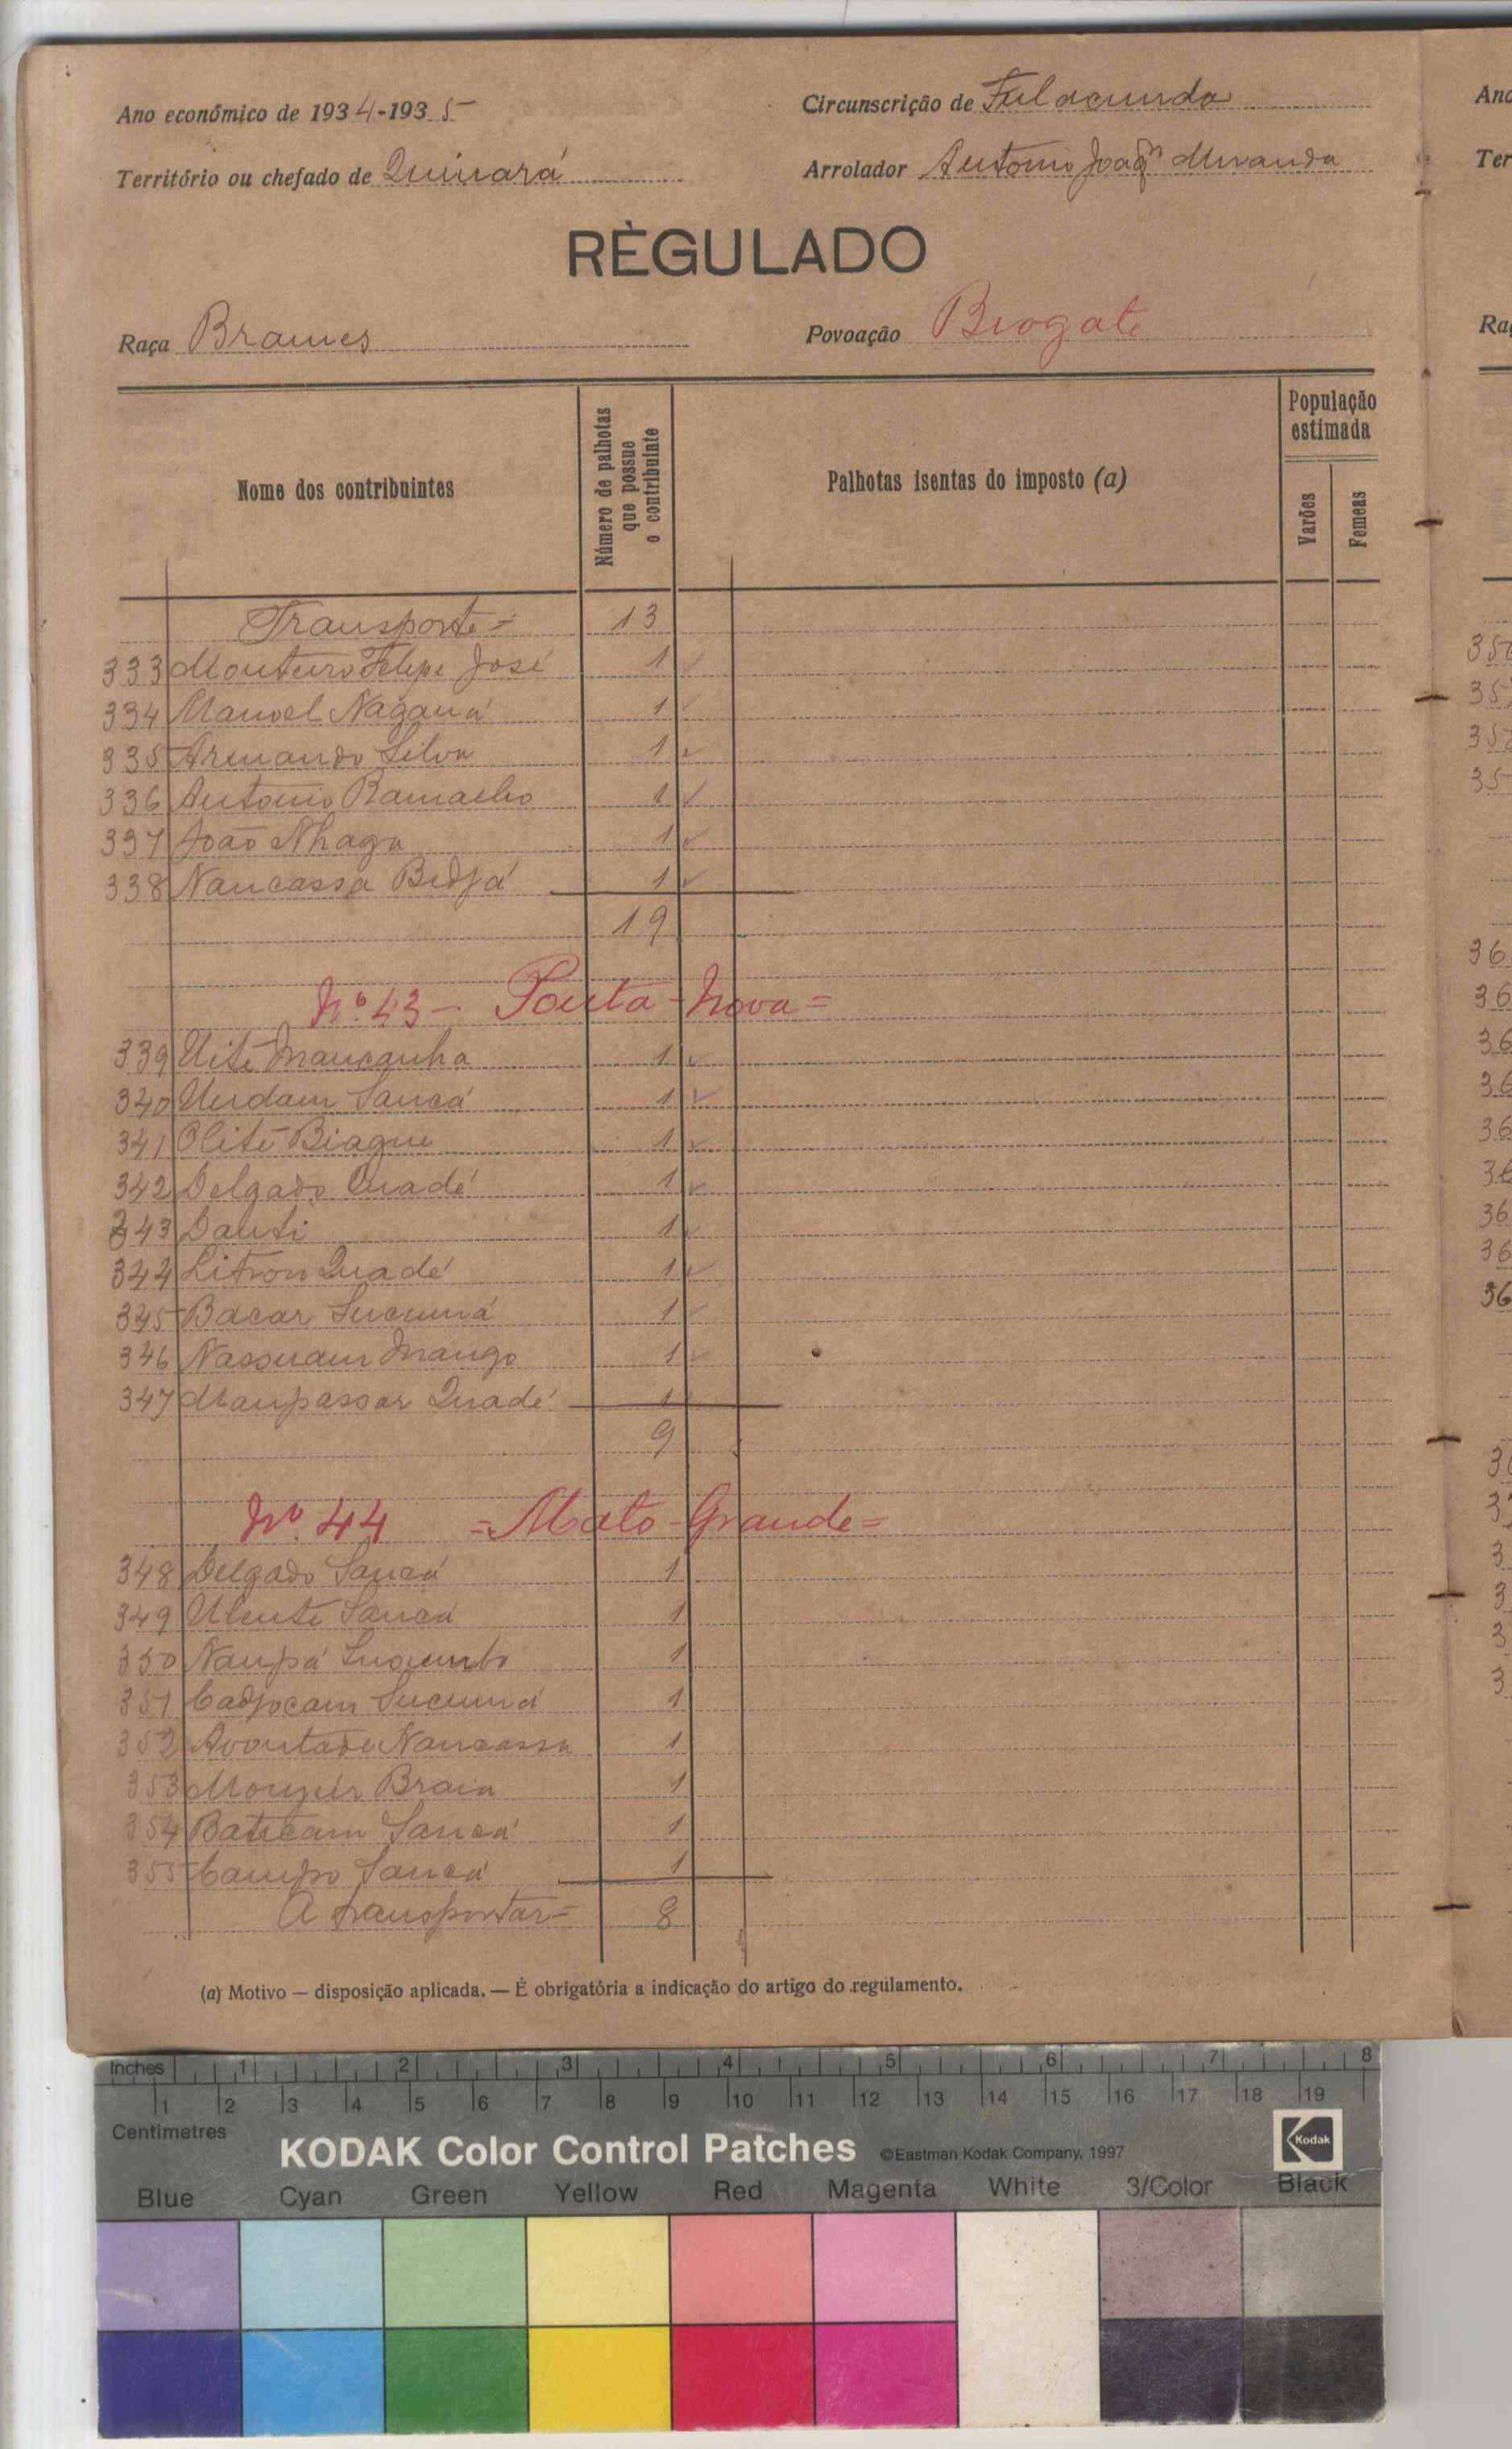 Ano económico de 1934-1935
Circunscrição de Fulacunda
Território ou chefado de Quinará
Arrolador Antonio Joaqm Miranda
RÈGULADO
Raça Brames
Povoação Biogate
Nome dos contribuintes
Número de palhotas que possue o contribuinte
Palhotas isentas do imposto (a)
População estimada
Varões
Femeas
Transporte = 13
333 Monteiro Felipe José 1
334 Manoel Nagana 1
335 Armando Silva 1
336 Antonio Ramalho 1
337 João Nhaga 1
338 Nancassa Bidjá 1
19
No. 43 - Ponta - Nova =
339 Uite Mancanha 1
340 Undam Sancá 1
341 Olite Biague 1
342 Delgado Quadé 1
343 Dauti 1
344 Litron Quadé 1
345 Bacar Sucuma 1
346 Nassuam Mango 1
347 Maupassar Quadé 1
9
No. 44 = Mato - Grande =
348 Delgado Sancá 1
349 Sancá 1
350 Naupá 1
351 Cadjocam Sucuma 1
352 Nancassa 1
353 Braia 1
354 Baticam Sancá 1
355 Campo Sancá 1
A transportar = 8
(a) Motivo — disposição aplicada. — É obrigatória a indicação do artigo do regulamento.
Inches 1 2 3 4 5 6 7 8
1 2 3 4 5 6 7 8 9 10 11 12 13 14 15 16 17 18 19
Centimetres
KODAK Color Control Patches ©Eastman Kodak Company, 1997 Kodak
Blue Cyan Green Yellow Red Magenta White 3/Color Black